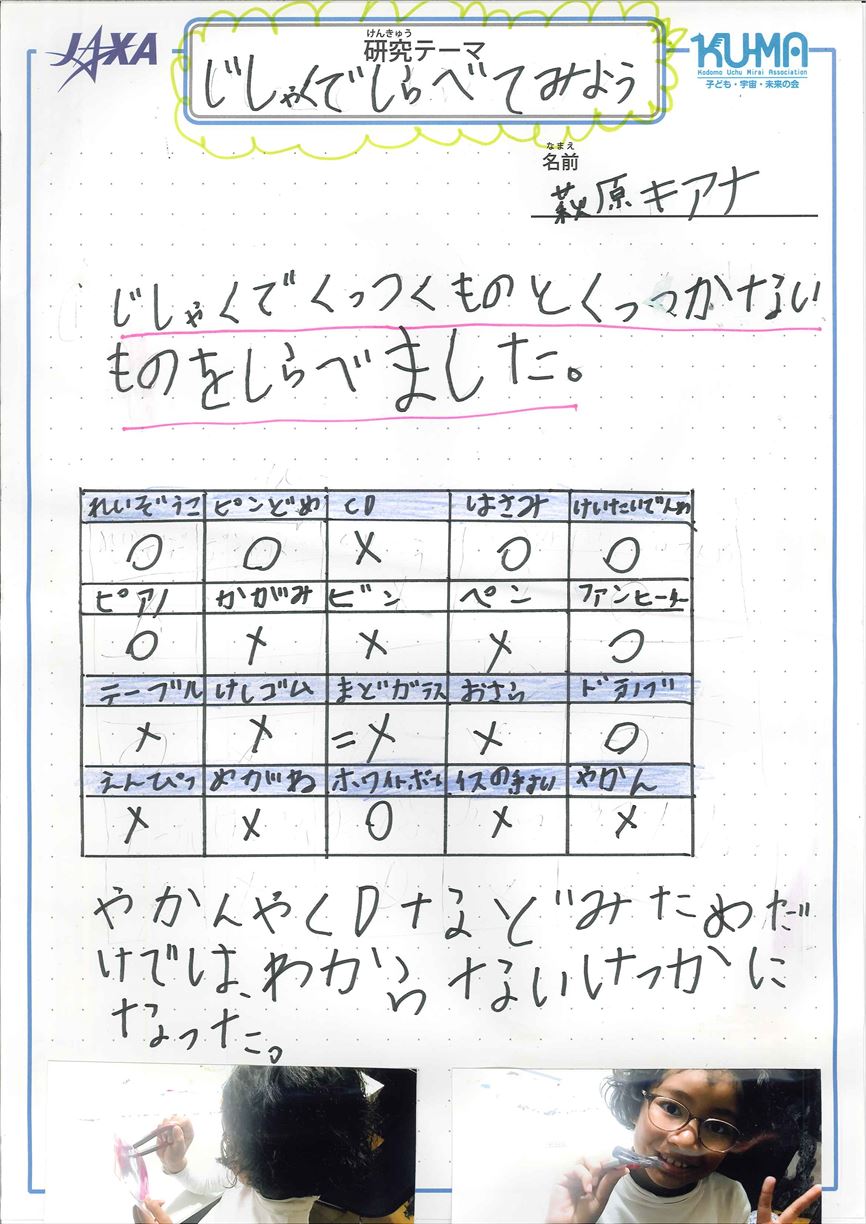 JAXA
けんきゅう
研究テーマ
じしゃくでしらべてみよう
KU-MA
Kodomo Uchu Mirai Association
子ども・宇宙・未来の会
なまえ
名前
萩原キアナ
じしゃくでくっつくものとくっつかない
ものをしらべました。
れいぞうこ ピンどめ CD はさみ けいたいでんわ
○ ○ × ○ ○
ピアノ かがみ ビン ペン ファンヒーター
○ × × × ○
テーブル けしゴム まどガラス おさら ドアノブ
× × =× × ○
えんぴつ めがね ホワイトボード イスのきさい やかん
× × ○ × ×
やかんやCDなどみためだ
けでは、わからないけっかに
なった。